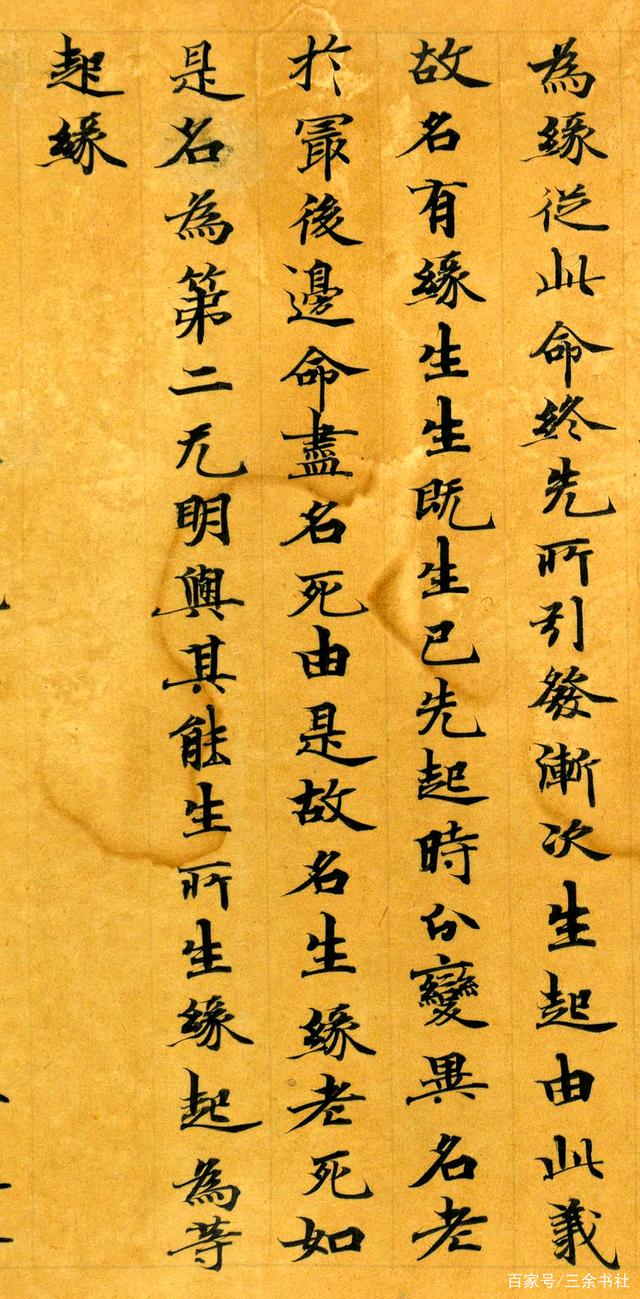 為緣從此命終先所引發漸次生起由此義
故名有緣生生既生已先起時分變異名老
於冣後邊命盡名死由是故名生緣老死如
是名為第二无明與其能生所生緣起為等
起緣
百家号/三余书社